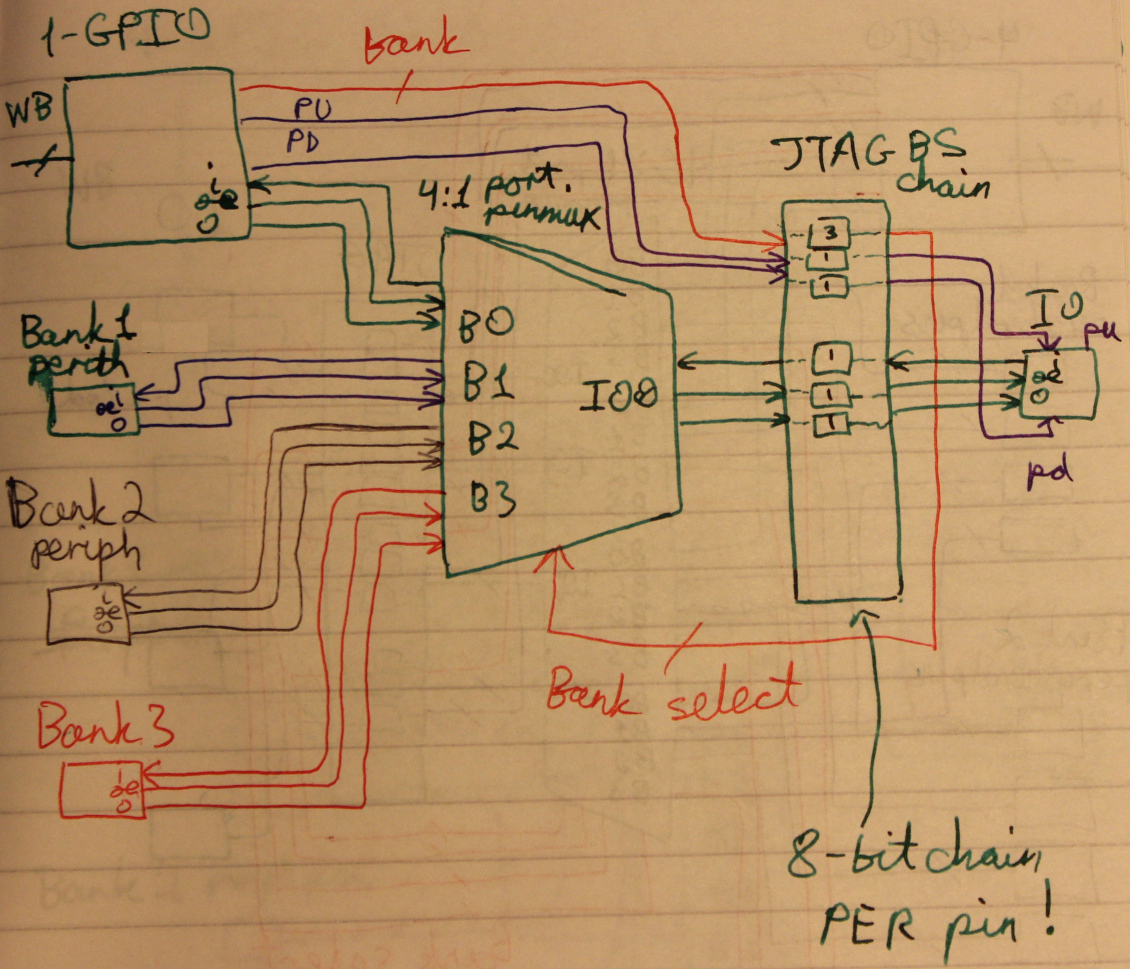 1-GPIO
Bank
WB
PU
PD
i
oe
o
4:1 port.
pinmux
JTAG BS
chain
3
1
1
1
1
1
B0
B1
B2
B3
IO0
IO
pu
i
oe
o
pd
Bank 1
perith
i
oe
o
Bank 2
periph
i
oe
o
Bank 3
i
oe
o
Bank select
8-bit chain
PER pin!